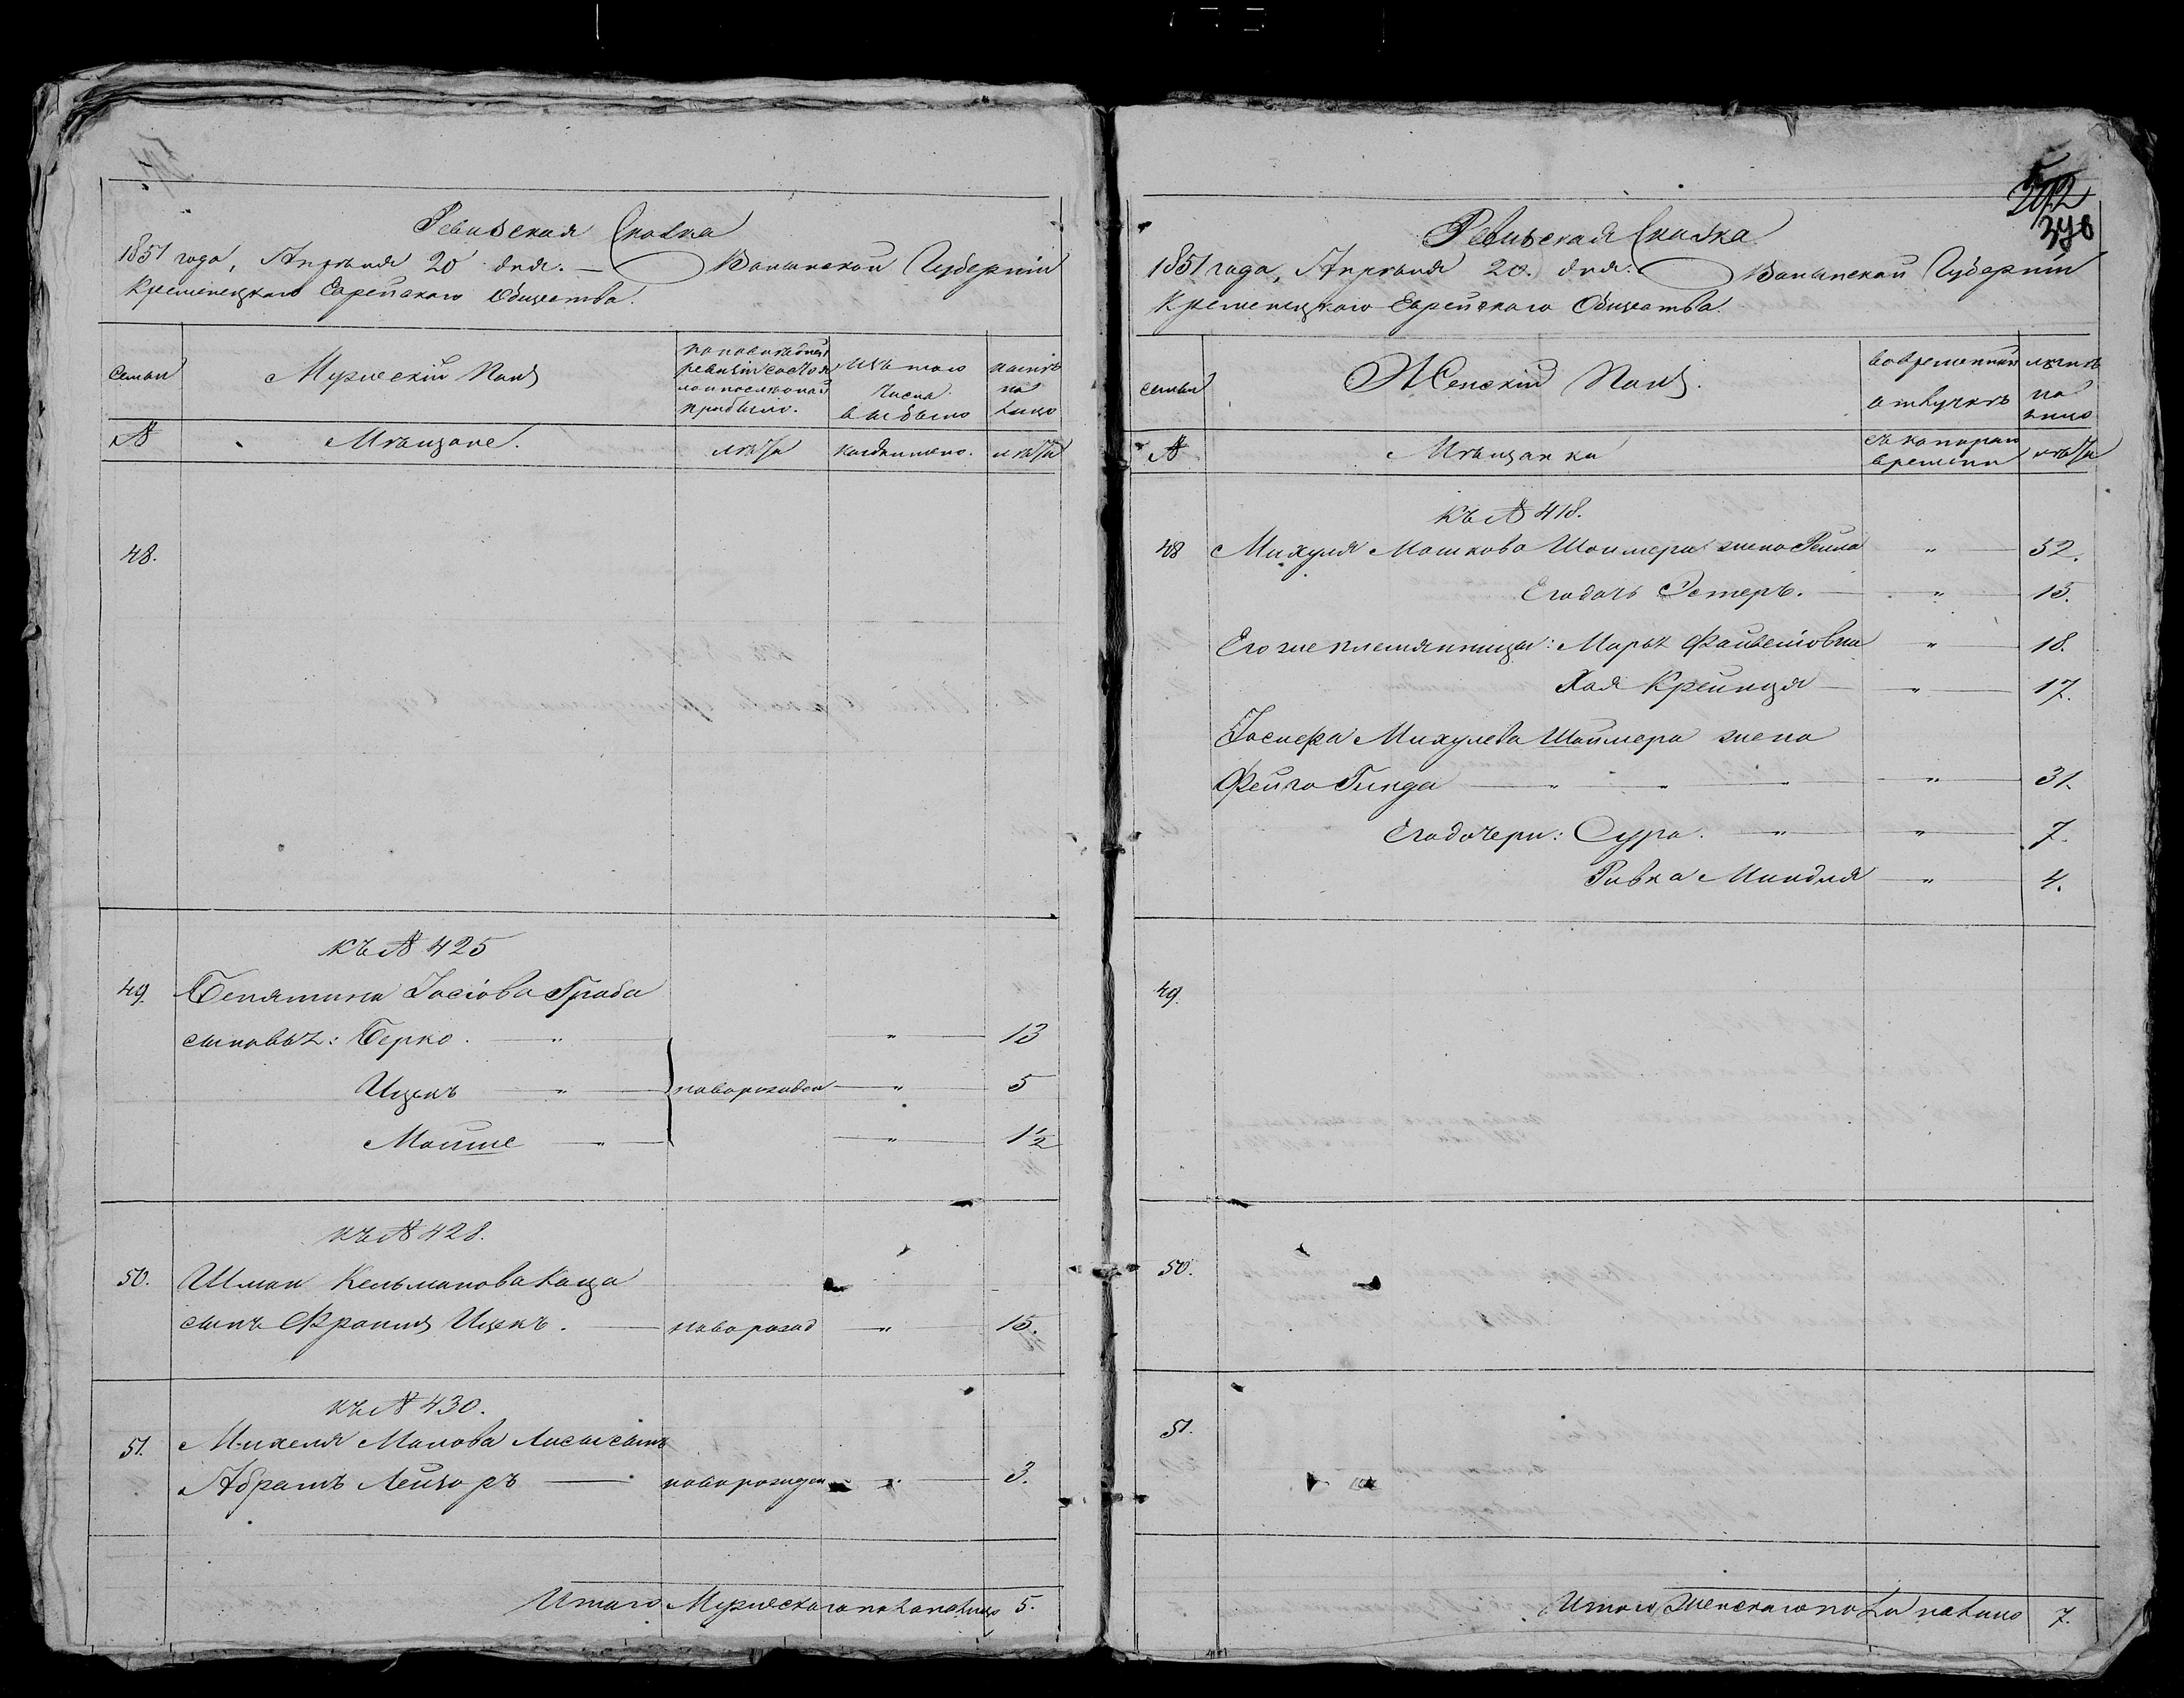 Ревизская Сказка
1851 года, Апреля 20 дня. — Волынской Губерніи
Кременецкаго Еврейскаго Общества.
Семьи
Мужескій Полъ
по последней
ревизіи состоя
ло и после оной
прибыло.
Изъ того
числа
выбыло
ныне
на
лицо
№
Мѣщане.
лѣта
когда именно.
лѣта
48.
къ № 425
49. Бенямина Іосіова Граба
сыновья: Берко. — " — " — 13
Ицекъ — " — новорожден — " — 5
Мошше — " — " — 1½
къ № 428.
50. Шмаи Кельманова Каца
сынъ Фроимъ Ицекъ. — новорожд — " — 15.
къ № 430.
51. Михеля Манова Лисы сынъ
Абрамъ Лейзоръ — новорожден " — 3.
Итого Мужескаго пола на лицо 5.
292
Ревизская Сказка
1851 года, Апреля 20. дня. Волынской Губерніи
Кременецкаго Еврейскаго Общества.
семьи
Женскій Полъ.
во временной
отлучкѣ
лѣтъ
на
лицо
№
Мѣщанки
съ котораго
времени
лѣта
къ № 418.
48 Михуля Мошкова Шоймера жена Рейла " — 52.
Его дочь Эстеръ. — " — 15.
Его же племянницы: Марья Файвешовна " — 18.
Хая Крейнця — " — 17.
Іосифа Михулева Шоймера жена
Фейга Гинда — " — " — " — " — 31.
Его дочери: Сура. — " — " — 7.
Ривка Миндля — " — 4.
49.
50.
51.
Итого женскаго пола на лицо 7.